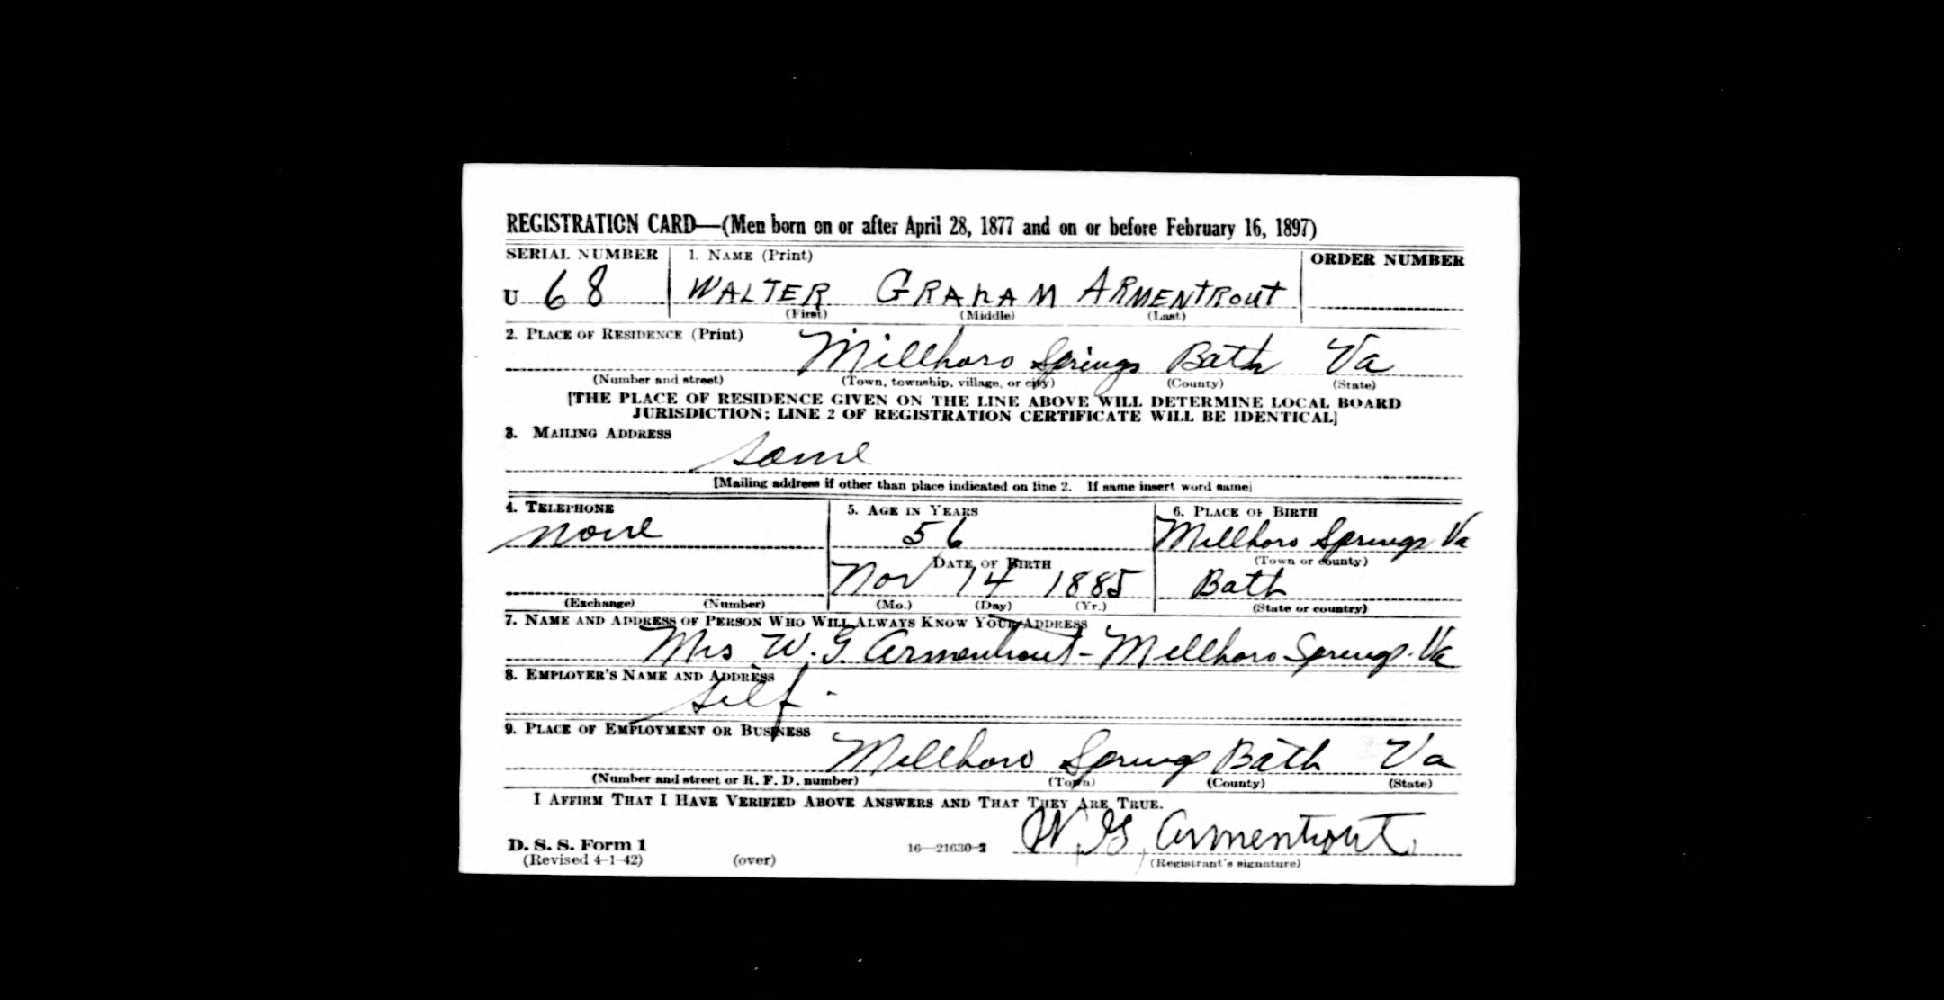 REGISTRATION CARD—(Men born on or after April 28, 1877 and on or before February 16, 1897)
SERIAL NUMBER 1. NAME (Print) ORDER NUMBER
U 68 WALTER GRAHAM ARMENTROUT
(First) (Middle) (Last)
2. PLACE OF RESIDENCE (Print)
Millboro Springs Bath Va
(Number and street) (Town, township, village, or city) (County) (State)
[THE PLACE OF RESIDENCE GIVEN ON THE LINE ABOVE WILL DETERMINE LOCAL BOARD
JURISDICTION; LINE 2 OF REGISTRATION CERTIFICATE WILL BE IDENTICAL]
3. MAILING ADDRESS
same
[Mailing address if other than place indicated on line 2. If same insert word same]
4. TELEPHONE 5. AGE IN YEARS 6. PLACE OF BIRTH
none 56 Millboro Springs Va
DATE OF BIRTH (Town or county)
Nov 14 1885 Bath
(Exchange) (Number) (Mo.) (Day) (Yr.) (State or country)
7. NAME AND ADDRESS OF PERSON WHO WILL ALWAYS KNOW YOUR ADDRESS
Mrs W. G Armentrout - Millboro Springs. Va
8. EMPLOYER'S NAME AND ADDRESS
Self -
9. PLACE OF EMPLOYMENT OR BUSINESS
Millboro Springs Bath Va
(Number and street or R. F. D. number) (Town) (County) (State)
I AFFIRM THAT I HAVE VERIFIED ABOVE ANSWERS AND THAT THEY ARE TRUE.
W. G. Armentrout
D. S. S. Form 1
(Revised 4-1-42) (over) 16—21630-2 (Registrant's signature)